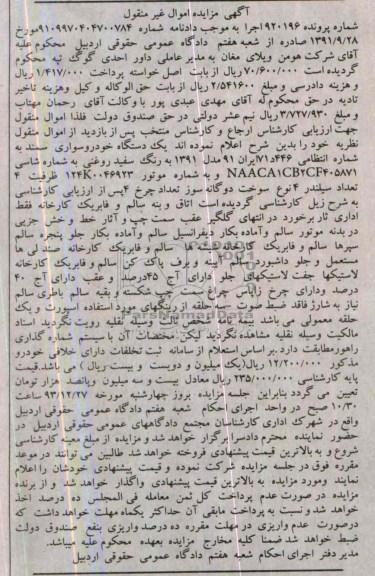 آگهی مزایده اموال غیر منقول
شماره پرونده ۹۲۰۱۹۶ اجرا به موجب دادنامه شماره ۹۱۰۹۹۷۰۴۰۴۷۰۰۷۸۴ مورخ
۱۳۹۱/۹/۲۸ صادره از شعبه هفتم دادگاه عمومی حقوقی اردبیل محکوم علیه
آقای شرکت هومن ویلای مغان به مدیر عاملی داور احدی گوگ تپه محکوم
گردیده است ۷۰/۶۰۰/۰۰۰ ریال از بابت اصل خواسته پرداخت ۱/۴۱۷/۰۰۰ ریال
و هزینه دادرسی و مبلغ ۲/۵۴۱۶۰۰ ریال از بابت حق الوکاله و کیل وهزینه تاخیر
تادیه در حق محکوم له آقای مهدی عبدی پور با وکالت آقای رحمان مهتاب
و مبلغ ۳/۷۲۷/۹۳۰ ریال نیم عشر دولتی در حق صندوق دولت فلذا اموال منقول
جهت ارزیابی کارشناس ارجاع و کارشناس منتخب پس از بازدید از اموال منقول
نظریه خود را بدین شرح اعلام نموده اند یک دستگاه خودروسواری سمند به
شماره انتظامی ۴۴۶د۷۱ ایران ۹۱ مدل ۱۳۹۱ به رنگ سفید روغنی به شماره شاسی
NAACA1CB2CF405871 و به شماره موتور 124K0046923 ظرفیت ۴
تعداد سیلندر ۴ نوع سوخت دوگانه سوز تعداد چرخ ۴ پس از ارزیابی کارشناسی
به شرح زیل کارشناسی گردیده است اتاق و بنه سالم و فابریک کارخانه فقط
اداری تار برخورد در انتهای گلگیر عقب سمت چپ و آثار خط و خش جزیی
در بدنه موتور سالم وآماده بکار دیفرانسیل سالم وآماده بکار جلو پنجره سالم
سپرها سالم و فابریک کارخانه شیشه ها سالم و فابریک کارخانه صندلی ها
مستعمل و جلو داشبورد آینه و برف پاک کن سالم و فابریک کارخانه
لاستیکها جفت لاستیکهای جلو دارای آج ۴۵درصد و عقب دارای آج ۴۰
درصد ودارای چرخ زاپاس چراغ سمت چپ شکسته و بقیه سالم باطری سالم
نیاز به شارژ فاقد ضبط صوت سه حلقه از رینگهای مورد استفاده اسپورت و یک
حلقه معمولی می باشد بیمه نامه شخص ثالث وسیله نقلیه رویت نگردید اسناد
مالکیت وسیله نقلیه مشاهده نگردید لیکن مختصات آن با سیستم شماره گذاری
راهور مطابقت دارد.بر اساس استعلام از سامانه ثبت تخلفات دارای خلافی خودرو
مذکور ۱۲/۲۰۰/۰۰۰ ریال(یک میلیون و دویست و بیست ریال ) می باشد.قیمت
پایه کارشناسی ۲۳۵/۰۰۰/۰۰۰ ریال معادل بیست و سه میلیون وپانصد هزار تومان
تعیین می گردد بنابراین جلسه مزایده بروز چهارشنبه مورخه ۹۳/۱۲/۲۷ ساعت
۱۰/۳۰ صبح در واحد اجرای احکام شعبه هفتم دادگاه عمومی حقوقی اردبیل
واقع در شهرک اداری کارشناسان مجتمع دادگاههای عمومی حقوقی اردبیل در
حضور نماینده محترم دادسرا برگزار خواهد شد و مزایده از مبلغ معینه کارشناسی
شروع و به بالاترین قیمت پیشنهادی فروخته خواهد شد طالبین می توانند در موعد
مقرره فوق در جلسه مزایده شرکت نموده و قیمت پیشنهادی خودشان را اعلام
نمایند ومورد مزایده به بالاترین قیمت پیشنهادی واگذار خواهد شد و از برنده
مزایده در صورت عدم پرداخت کل ثمن معامله فی المجلس ده درصد اخذ
خواهد شد و نسبت به پرداخت مابقی آن حداکثر یکماه مهلت خواهد داشت که
درصورت عدم واریزی در مهلت مقرره ده درصد واریزی بنفع صندوق دولت
ضبط خواهد شد ضمنا کلیه مخارج مزایده بعهده محکوم علیه میباشد.
مدیر دفتر اجرای احکام شعبه هفتم دادگاه عمومی حقوقی اردبیل